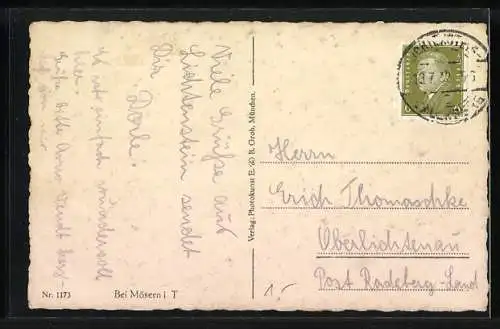 Viele Grüße aus
Lichtenstein sendet
Dir Dorle.
Es ist einfach wundervoll
hier.
Grüße bitte
Verlag: Photokunst E. & B. Groh, München.
Herrn
Erich Thomaschke
Oberlichtenau
Post Radeberg-Land
Nr. 1173 Bei Mösern i. T
1,-